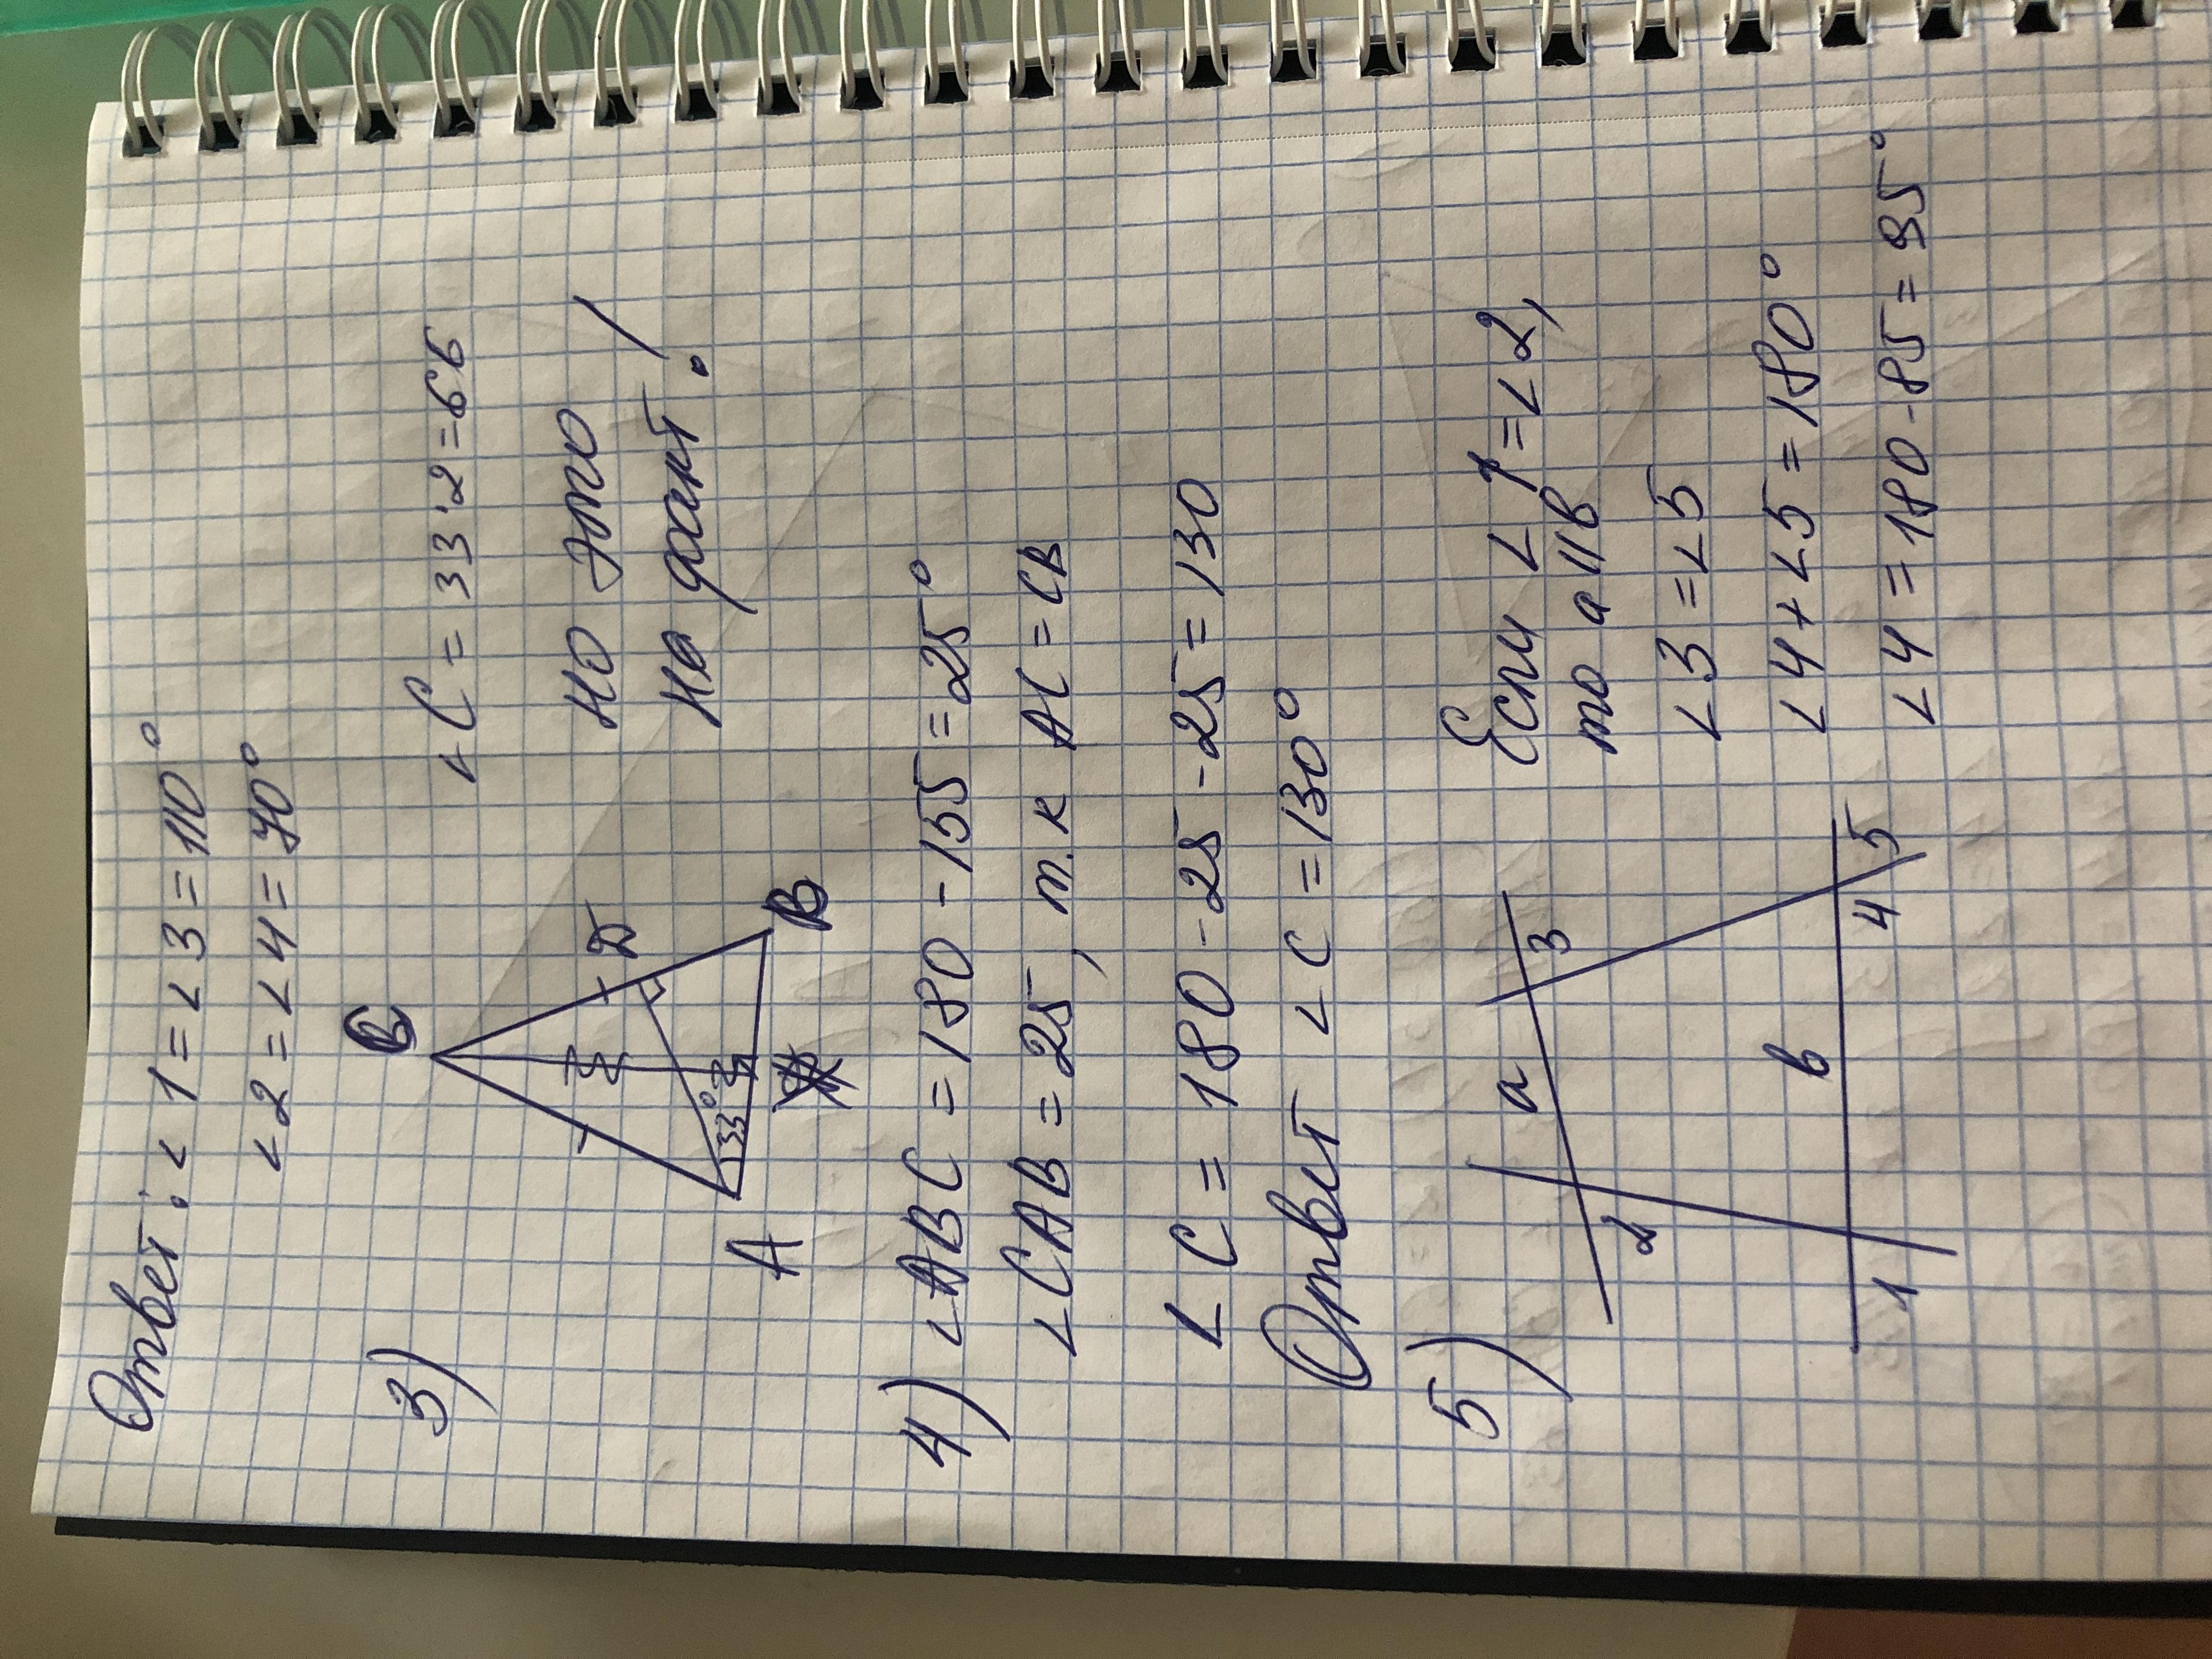 Ответ: ∠1=∠3=110°
∠2=∠4=70°
3)
C
D
33°
A
B
∠C=33·2=66
Но это
не факт!
4) ∠ABC=180-155=25°
∠CAB=25, т.к AC=CB
∠C=180-25-25=130
Ответ ∠C=130°
5)
a
3
2
в
1
4
5
Если ∠1=∠2,
то a||в
∠3=∠5
∠4+∠5=180°
∠4=180-85=95°